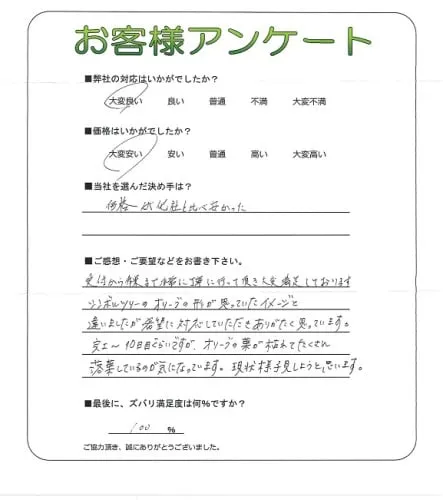 お客様アンケート
■弊社の対応はいかがでしたか？
大変良い 良い 普通 不満 大変不満
■価格はいかがでしたか？
大変安い 安い 普通 高い 大変高い
■当社を選んだ決め手は？
価格が他社と比べ安かった
■ご感想・ご要望などをお書き下さい。
まで 丁寧に行って頂き大変満足しております
シンボルツリーのオリーブの形が思っていたイメージと
違いましたが希望に対応していただきありがたく思っています。
完工〜10日目ぐらいですが、オリーブの葉が枯れてたくさん
落葉しているのが気になっています。現状様子見しようと思います。
■最後に、ズバリ満足度は何％ですか？
100 ％
ご協力頂き、誠にありがとうございました。